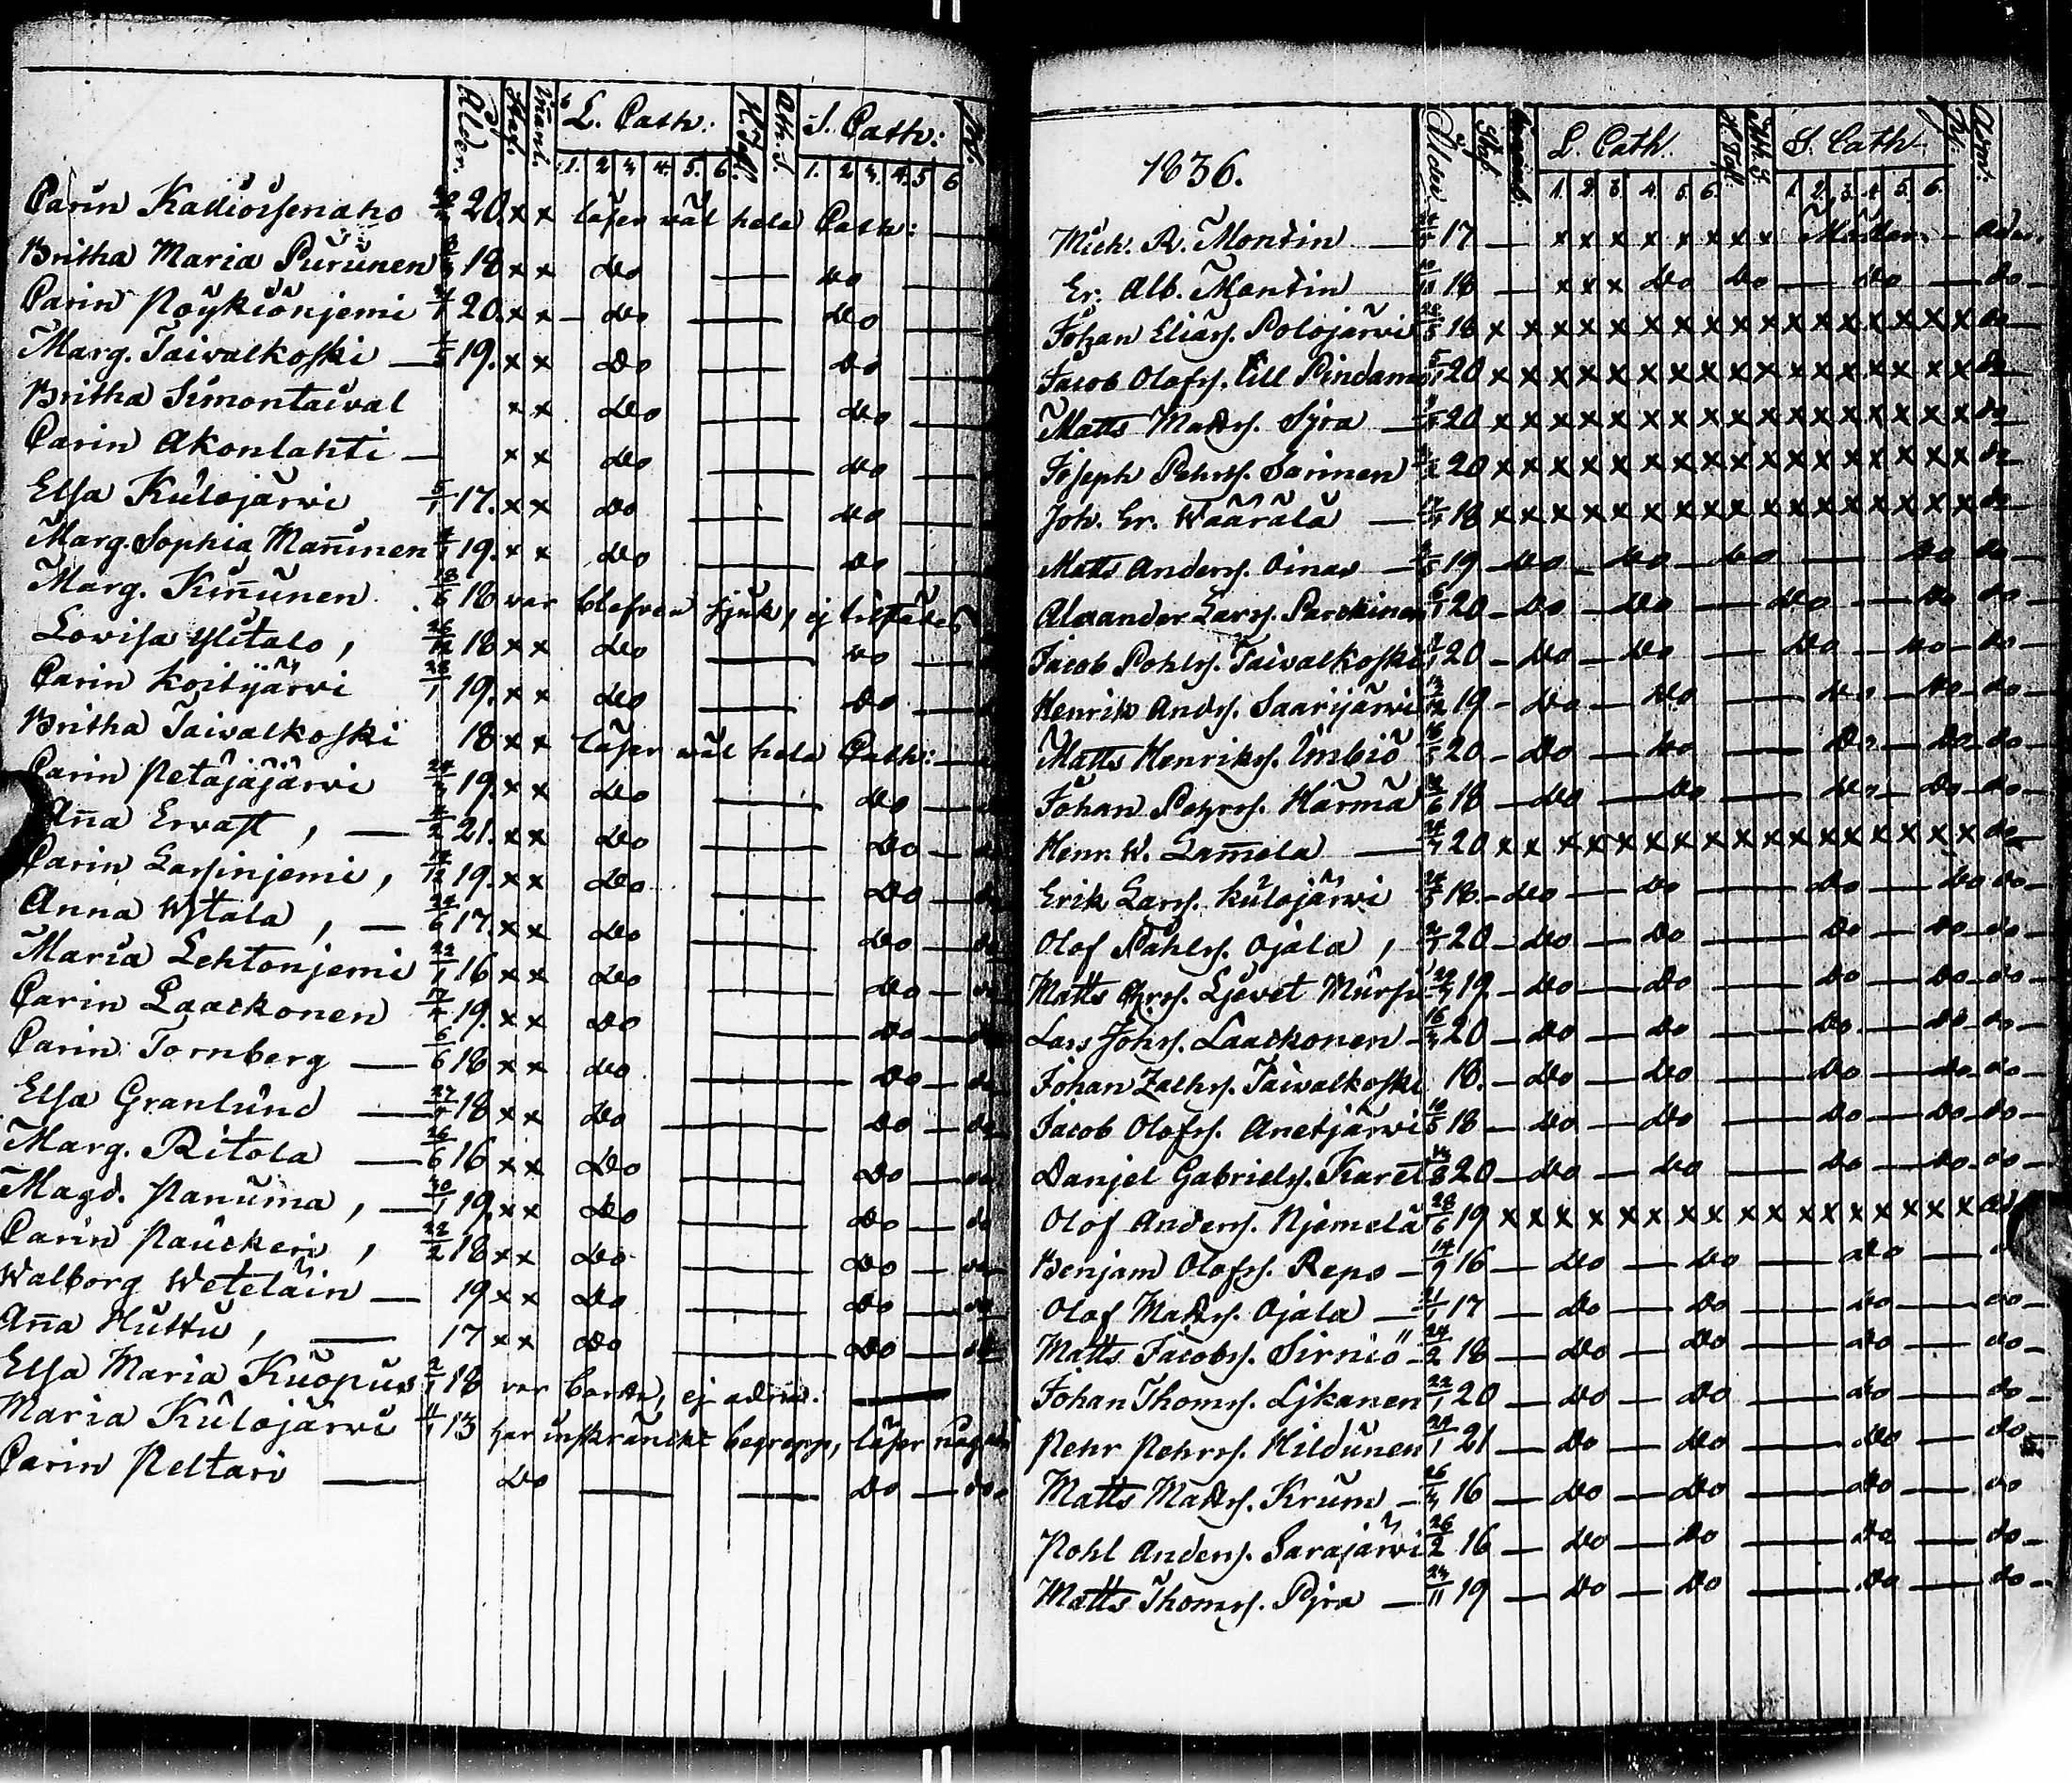 Ålder. Staf. L. Cath: H. Tafl. Ath. S. S. Cath:
1. 2 3 4. 5. 6. 1. 2 3. 4. 5 6
Carin Kallioisenaho 20. x x läser väl hela Cath:
Britha Maria Purunen 18 x x do — do
Carin Pöykiönjemi 20. x x — do — do
Marg. Taivalkoski — 19. x x do — do
Britha Simontaival x x do — do
Carin Akonlahti — x x do — do
Elsa Kulojärvi 5/1 17. x x do — do
Marg. Sophia Mañinen 19. x x do — do
Marg. Kiñunen 18/6 18 var blefven sjuk, ej
Lovisa Ylitalo, 26/12 18 x x do — do
Carin Koitijärvi 28/1 19. x x do — do
Britha Taivalkoski 18 x x läser väl hela Cath:
Carin Petäjäjärvi 19. x x do — do
Aña Ervast, — 21. x x do — do
Carin Lassinjemi, 19. x x do — do
Anna Wjtala, — 24/6 17. x x do — do — do
Maria Lehtonjemi 22/1 16 x x do — do — do
Carin Laackonen 19. x x do — do — do
Carin Tornberg — 6/6 18 x x do — do — do
Elsa Granlund — 18 x x do — do — do
Marg. Ritola — 26/6 16 x x do — do — do
Magd. Panuma, — 30/1 19. x x do — do — do
Carin Pauckeri, 22/2 18 x x do — do — do
Walborg Weteläin — 19 x x do — do — do
Aña Huttu, — 17 x x do — do — do
Elsa Maria Kuopus 2/1 18 var borta, ej adm:
Maria Kulojärvi 11/1 13 har inskränckt begrepp, läser något
Carin Peltari — do — — do — do
1836.
Ålder Staf. L. Cath. H. Tafl. Ath. S. S. Cath. Adm:
1. 2. 3 4. 5. 6. 1. 2. 3. 4 5. 6.
Mich. R. Montin — 17 — x x x x x x x x
Er. Alb. Montin 18 — x x x do do — do — do
Johan Eliass. Polojärvi 18 x x x x x x x x x x x x x x x x do
Jacob Olofss. Lill Pindamo 5/1 20 x x x x x x x x x x x x x x x x do
Matts Matss. Syra — 20 x x x x x x x x x x x x x x x x do
Joseph Pehrss. Sarinen 20 x x x x x x x x x x x x x x x x do
Joh. Er. Wäärälä — 18 x x x x x x x x x x x x x x x x do
Matts Anderss. Oinas — 19 — do — do — do — do do
Alexander Larss. Parckinen 6/1 20 — do — do — do — do do
Jacob Pohlss. Taivalkoski 20 — do — do — do — do — do
Henrik Andss. Saarijärvi 19 — do — do — do — do — do
Matts Henrikss. Imbiö 20 — do — do — do — do — do
Johan Pehrss. Härmä 18 — do — do — do — do — do
Henr. W. Lam̄ela — 20 x x x x x x x x x x x x x x x x do
Erik Larss. Kulojärvi 18. — do — do — do — do do
Olof Påhlss. Ojala, 20 — do — do — do — do — do
Matts Ljevet Mursu 19 — do — do — do — do — do
Lars Johss. Laackonen — 20 — do — do — do — do — do
Johan Zachss. Taivalkoski 18. — do — do — do — do — do
Jacob Olofss. Anetjärvi 18 — do — do — do — do — do
Danjel Gabrielss. Karet 20 — do — do — do — do — do
Olof Anderss. Njemelä 28/6 19 x x x x x x x x x x x x x x x x
Benjam Olofss. Repo — 14/9 16 — do — do — do —
Olof Matss. Ojala — 21/1 17 — do — do — do — do
Matts Jacobss. Sirniö — 24/2 18 — do — do — do — do
Johan Thomss. Ljkanen 22/1 20 — do — do — do — do
Pehr Pehrss. Hildunen 24/1 21 — do — do — do — do
Matts Matss. Krum — 16 — do — do — do — do
Pohl Anderss. Sarajärvi 26/2 16 — do — do — do — do
Matts Thomss. Pjra — 23/11 19 — do — do — do — do